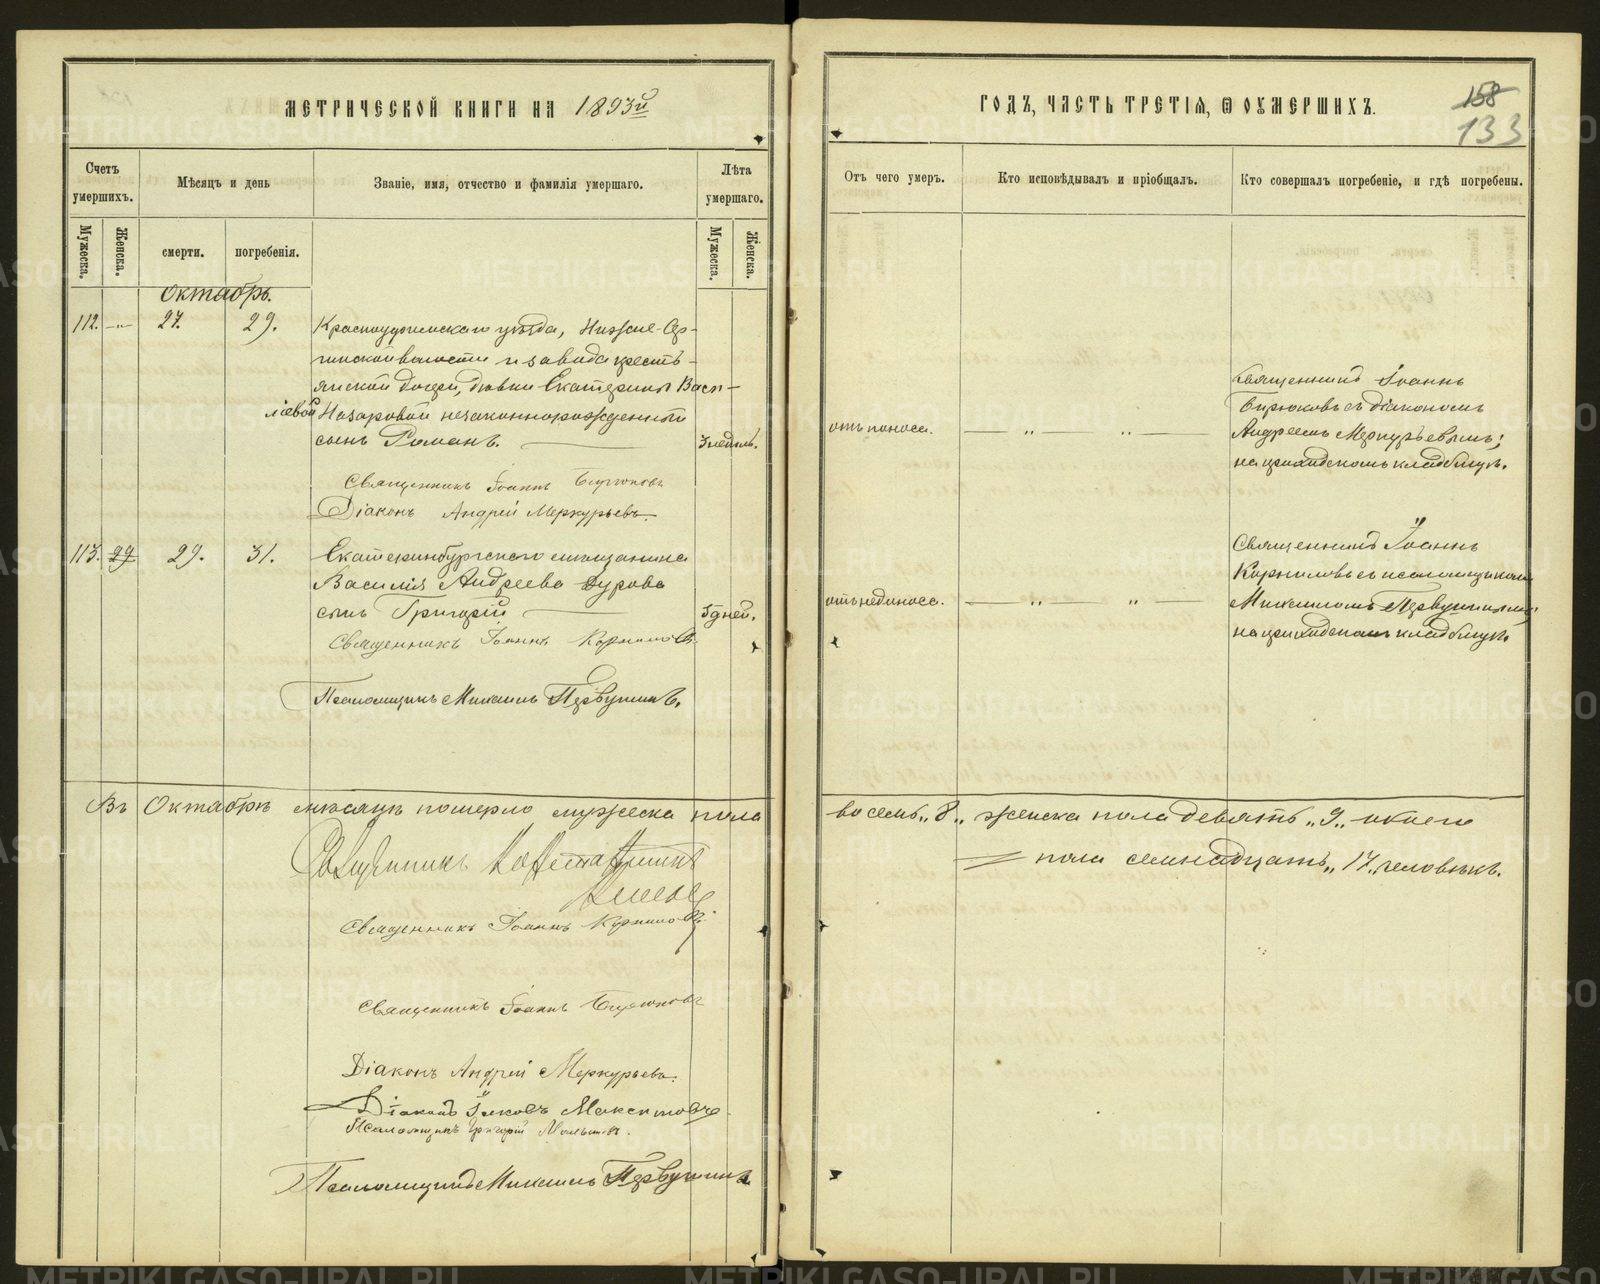 МЕТРИЧЕСКОЙ КНИГИ НА 1893й
Счетъ умершихъ.
Мужеска.
Женска.
Мѣсяцъ и день
смерти.
погребенія.
Званіе, имя, отчество и фамилія умершаго.
Лѣта умершаго.
Мужеска.
Женска.
Октябрь.
112. —„— 27. 29. Красноуфимскаго уѣзда, Нижне-Сер-
гинской волости и завода кресть-
янской дочери, дѣвки Екатерины Васи-
лиевой Назаровой незаконнорожденный
сынъ Романъ. 3 недѣль.
Священникъ Іоаннъ Бирюковъ
Діаконъ Андрей Меркурьевъ.
113. 29 29. 31. Екатеринбургскаго мѣщанина
Василія Андреева Дурова
сынъ Григорій 5 дней.
Священникъ Іоаннъ Корниловъ.
Псаломщикъ Михаилъ Первушинъ.
Въ Октябрѣ мѣсяцѣ померло мужеска пола
Священникъ Константинъ
Священникъ Іоаннъ Корниловъ.
Священникъ Іоаннъ Бирюковъ
Діаконъ Андрей Меркурьевъ.
Діаконъ Іаковъ Максимовъ.
Псаломщикъ Григорій
Псаломщикъ Михаилъ Первушинъ
ГОДЪ, ЧАСТЬ ТРЕТІЯ, Ѿ ОУМЕРШИХЪ.
158
133
Отъ чего умеръ.
Кто исповѣдывалъ и пріобщалъ.
Кто совершалъ погребеніе, и гдѣ погребены.
отъ поноса. — „ „ —
Священникъ Іоаннъ
Бирюковъ съ діакономъ
Андреемъ Меркурьевымъ;
на приходскомъ кладбищѣ.
отъ недоноса. — „ „ —
Священникъ Іоаннъ
Корниловъ съ псаломщикомъ
Михаиломъ Первушинымъ;
на приходскомъ кладбищѣ.
восемь „8„ женска пола девять „9„ обоего
пола семнадцать „17„ человѣкъ.
METRIKI.GASO-URAL.RU